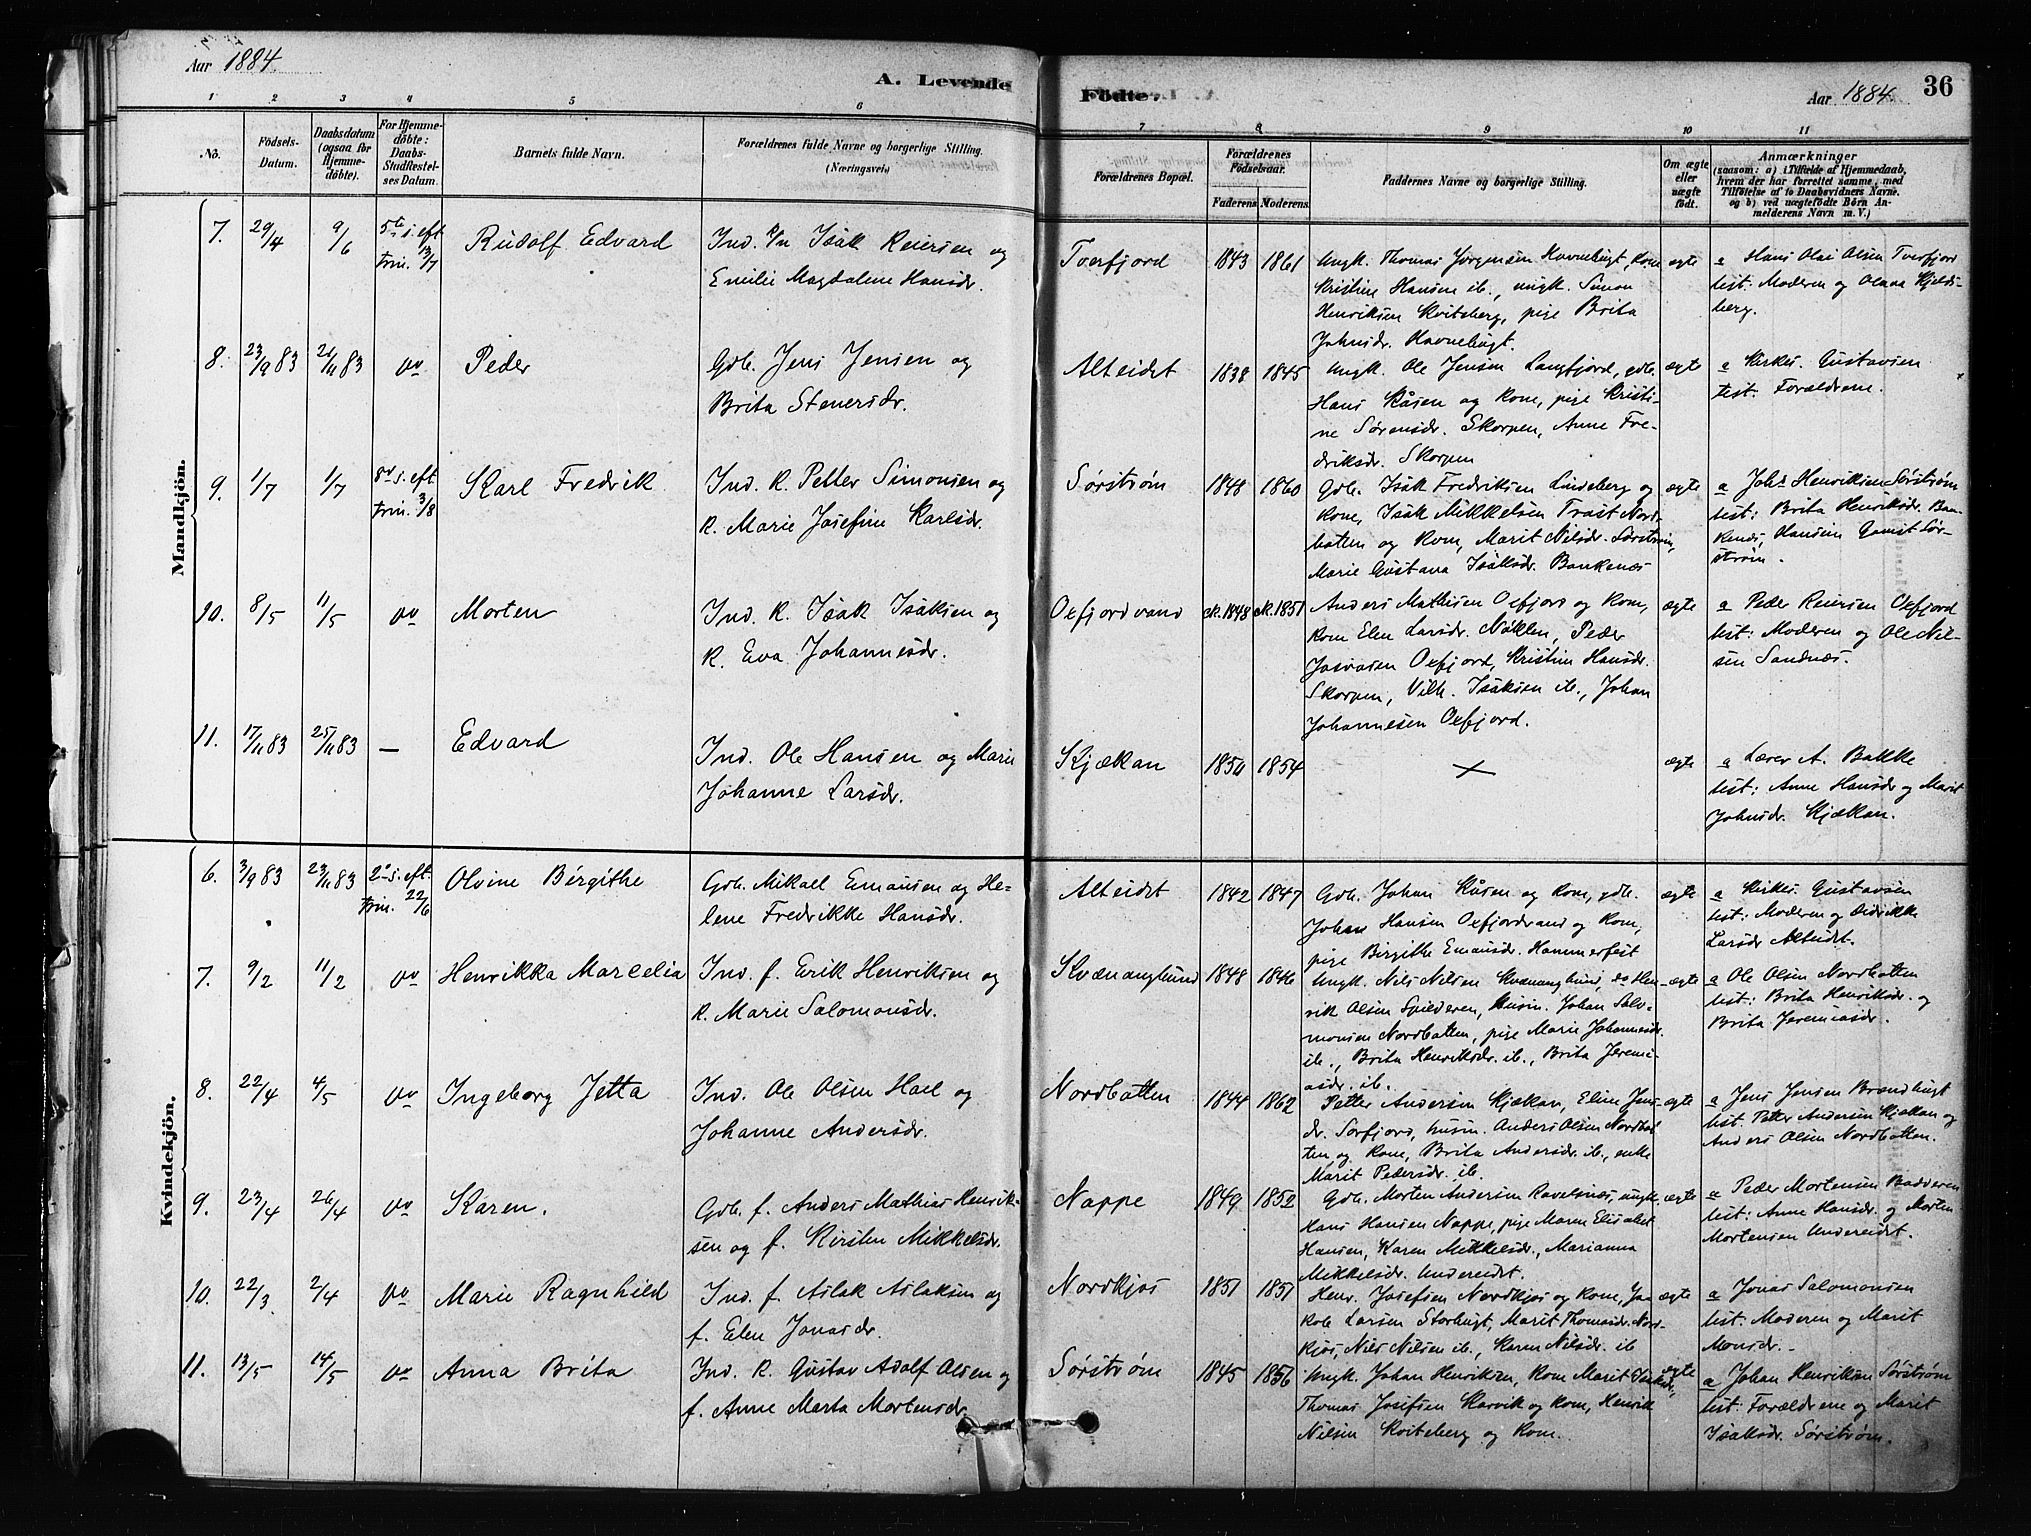 Aar 1884.
A. Levende
Födte.
Aar 1884.
36
1 2 3 4 5 6 7 8 9 10 11
No.
Födsels-
Datum.
Daabsdatum
(ogsaa for
Hjemme-
døbte).
For Hjemme-
døbte:
Daabs-
Stadfæstel-
ses Datum.
Barnets fulde Navn.
Forældrenes fulde Navne og borgerlige Stilling.
(Næringsvei)
Forældrenes Bopæl.
Forældrenes
Födselsaar.
Faderens Moderens.
Faddernes Navne og borgerlige Stilling.
Om ægte
eller
uægte
født.
Anmærkninger
(saasom: a) i Tilfælde af Hjemmedaab,
hvem der har forrettet samme, med
Tilføielse af to Daabsvidners Navne.
og b) ved uægtefödte Börn An-
melderens Navn m. V.)
Mandkjön.
7. 29/4 9/6 5te s. eft. trin. 13/7
Rudolf Edvard
Ind. k/n Isak Reiersen og
Emilie Magdalene Hansdr.
Tverfjord 1843 1861
Ungk. Thomas Jørgensen Havnebugt, kone
Kristine Hansen ib., ungk. Simon
Henriksen Kviteberg, pige Brita
Johnsdr. Havnebugt.
ægte
a Hans Olai Olsen Tverfjord
test: Moderen og Olava Kjelds-
berg.
8. 23/9 83 21/11 83 do
Peder
Gdb. Jens Jensen og
Brita Stenersdr.
Alteidet 1838 1845
Ungk. Ole Jensen Langfjord, gdb.
Hans Kåsen og kone, pige Kristi-
ne Sørensdr. Skorpen, Anne Fre-
driksdr. Skorpen
ægte
a Kirkes. Gustavsen
test: Forældrene.
9. 1/7 1/7 8de s. eft. trin. 3/8
Karl Fredrik
Ind. k. Petter Simonsen og
k. Marie Josefine Karlsdr.
Sørstrøm 1848 1860
Gdb. Isak Fredriksen Lindeberg og
kone, Isak Mikkelsen Trast Nord-
botten og kone, Marit Nilsdr. Sørstrøm,
Marie Gustava Isaksdr. Bankenæs
ægte
a Johs Henriksen Sørstrøm
test: Brita Henriksdr. Ban-
kenes, Hansine Qamst Sør-
strøm.
10. 8/5 11/5 do
Morten
Ind. k. Isak Isaksen og
k. Eva Johannesdr.
Oxfjordvand ck. 1848 ck. 1851
Anders Mathisen Oxfjord og kone,
kone Elen Larsdr. Nøklen, Peder
Josvasen Oxfjord, Kristine Hansdr.
Skorpen, Vilh. Isaksen ib., Johan
Johannesen Oxfjord.
ægte
a Peder Reiersen Oxfjord
test: Moderen og Ole Nil-
sen Sandnæs.
11. 17/11 83 25/11 83 —
Edvard
Ind. Ole Hansen og Marie
Johanne Larsdr.
Kjækan 1850 1854
×
ægte
a Lærer A. Bakke
test: Anne Hansdr og Marit
Johnsdr. Kjækan.
Kvindekjön.
6. 3/9 83 23/11 83 2den s. eft. trin. 22/6
Olvine Birgithe
Gdb. Mikael Emausen og He-
lene Fredrikke Hansdr.
Alteidet 1842 1847
Gdb. Johan Kåsen og kone, gdb.
Johan Hansen Oxfjordvand og kone,
pige Birgithe Emausdr. Hammerfest
ægte
a Kirkes. Gustavsen
test: Moderen og Didrikke
Larsdr Alteidet.
7. 9/2 11/2 do
Henrikka Marcelia
Ind. f. Erik Henriksen og
k. Marie Salomonsdr.
Kvænangbund 1848 1846
Ungk. Nils Nilsen Kvænangbund, do Hen-
rik Olsen Spilderen, husm. Johan Salo-
monsen Nordbotten, pige Marie Johannesdr.
ib., Brita Henriksdr. ib., Brita Jeremi-
asdr. ib.
ægte
a Ole Olsen Nordbotten
test: Brita Henriksdr. og
Brita Jeremiasdr.
8. 22/4 4/5 do
Ingeborg Jetta
Ind. Ole Olsen Hael og
Johanne Andersdr.
Nordbotten 1844 1862
Petter Andersen Kjækan, Eline Jens-
dr. Sørfjord, husm. Anders Olsen Nordbot-
ten og kone, Brita Andersdr. ib., enke
Marit Pedersdr. ib.
ægte
a Jens Jensen Brændbugt
test. Petter Andersen Kjækan og
Anders Olsen Nordbotten.
9. 23/4 26/4 do
Karen.
Gdb. f. Anders Mathias Henrik-
sen og f. Kirsten Mikkelsdr.
Nappe 1849 1852
Gdb. Morten Andersen Ravelsnæs, ungk.
Hans Hansen Nappe, pige Maren Elisabet
Hansen, Karen Mikkelsdr., Marianna
Mikkelsdr. Undereidet.
ægte
a Peder Mortensen Badderen
test: Anne Hansdr. og Morten
Mortensen Undereidet.
10. 22/3 2/4 do
Marie Ragnhild
Ind. f. Aslak Aslaksen og
f. Elen Jonasdr.
Nordkjos 1851 1851
Henr. Josefsen Nordkjos og kone, Ja-
kob Larsen Storbugt, Marit Thomasdr. Nord-
kjos, Nils Nilsen ib., Karen Nilsdr. ib
ægte
a Jonas Salomonsen
test: Moderen og Marit
Monsdr.
11. 13/5 14/5 do
Anna Brita
Ind. k. Gustav Adolf Olsen og
f. Anne Marta Mortensdr.
Sørstrøm 1845 1856
Ungk. Johan Henriksen, kone Marit Isaksdr.,
Thomas Josefsen Karvik og kone, Henrik
Nilsen Kviteberg og kone.
ægte
a Johan Henriksen Sørstrøm
test: Forældrene og Marit
Isaksdr. Sørstrøm.